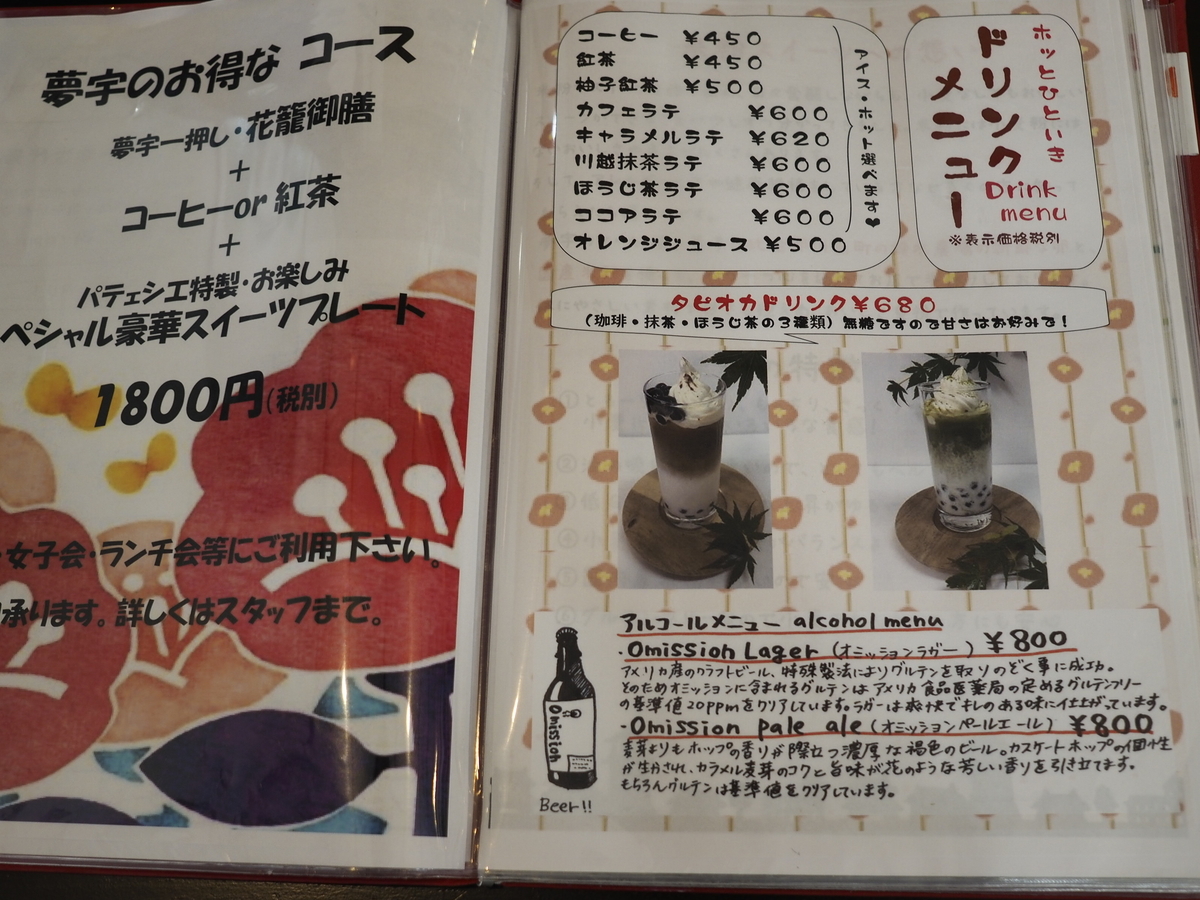 夢宇のお得な コース
夢宇一押し・花籠御膳
+
コーヒーor 紅茶
+
パテェシエ特製・お楽しみ
ペシャル豪華スイーツプレート
1800円(税別)
・女子会・ランチ会等にご利用下さい。
承ります。詳しくはスタッフまで。
ホッとひといき
ドリンク
メニュー
Drink
menu
※表示価格税別
コーヒー ¥450
紅茶 ¥450
柚子紅茶 ¥500
カフェラテ ¥600
キャラメルラテ ¥620
川越抹茶ラテ ¥600
ほうじ茶ラテ ¥600
ココアラテ ¥600
オレンジジュース ¥500
アイス・ホット選べます♥
タピオカドリンク¥680
(珈琲・抹茶・ほうじ茶の3種類) 無糖ですので甘さはお好みで!
アルコールメニュー alcohol menu
・Omission Lager (オミッションラガー) ¥800
アメリカ産のクラフトビール、特殊製法によりグルテンを取りのぞく事に成功。
そのためオミッションに含まれるグルテンは アメリカ食品医薬局の定めるグルテンフリー
の基準値20ppmをクリアしています。ラガーは爽快でキレのある味に仕上がっています。
・Omission pale ale (オミッションペールエール) ¥800
麦芽よりもホップの香りが際立つ濃厚な褐色のビール。カスケードホップの個性
が生かされ、カラメル麦芽のコクと旨味が花のような芳しい香りを引き立てます。
もちろんグルテンは基準値をクリアしています。
Omission
Beer!!